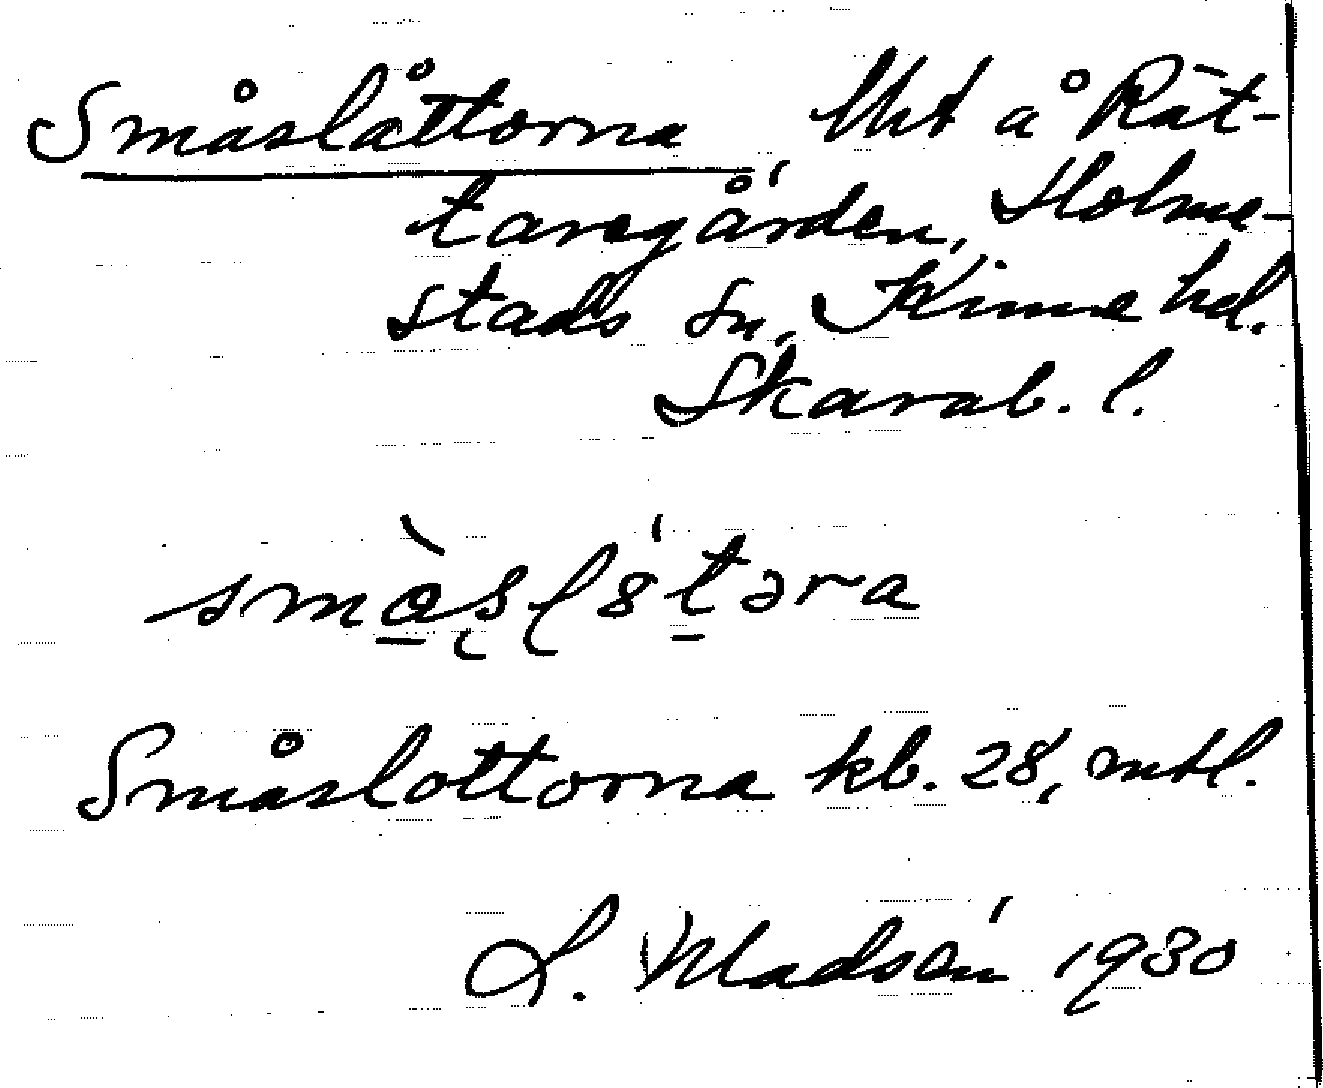 Småslåttorna Utt å Rät-
taregården, Holme-
stads sn, Kinne hd.
Skarab. l.
Småslottorna kb. 28, mtl.
L. Madsén 1930